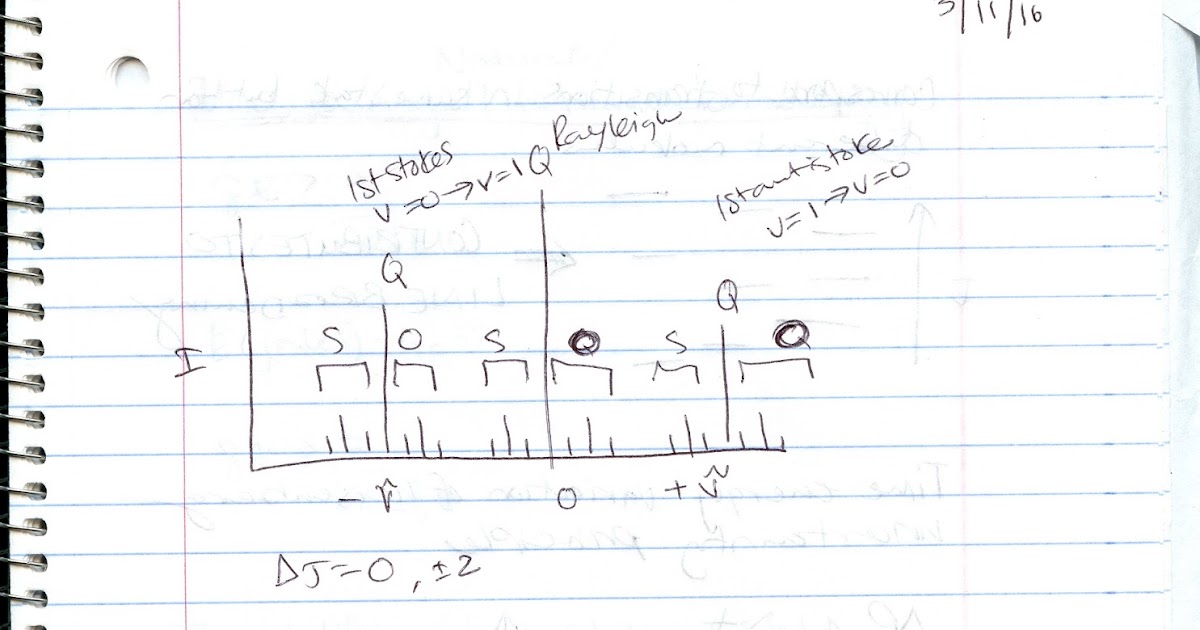 3/11/16
1st stokes
v=0→v=1
Q Rayleigh
1st antistoke
v=1→v=0
Q
Q
S O S S
I
- ṽ 0 + ṽ
ΔJ=0, ±2